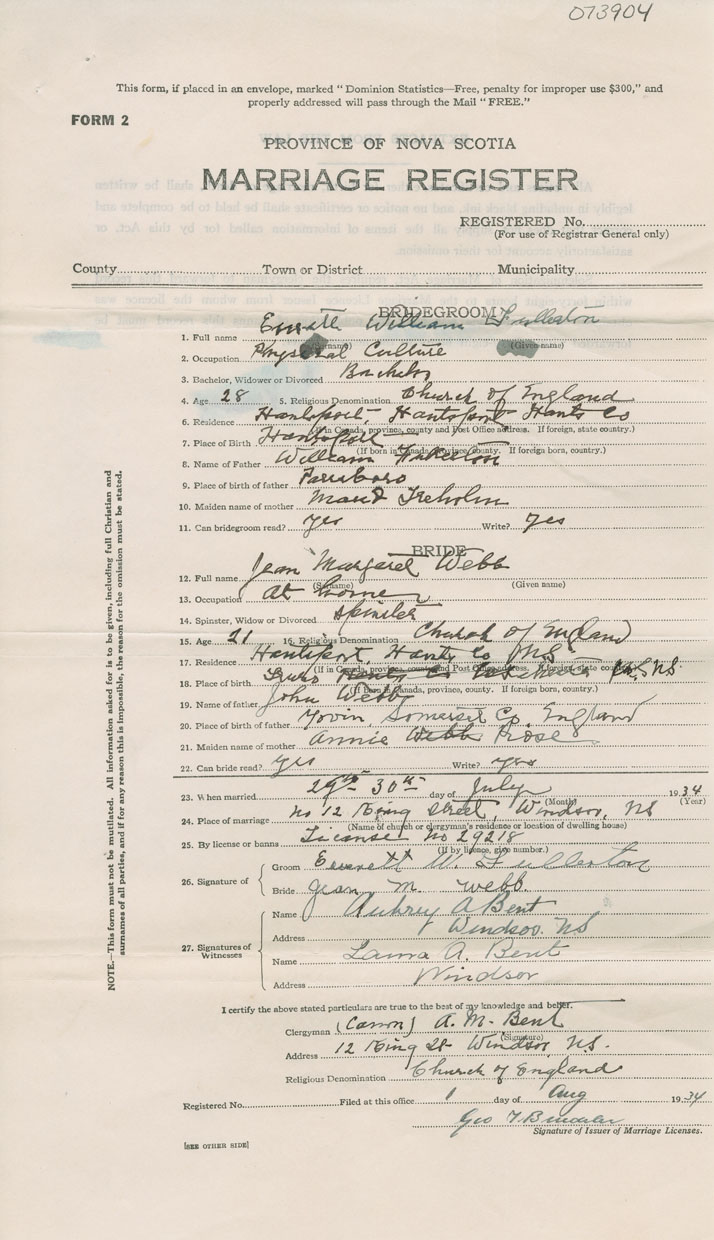 073904
This form, if placed in an envelope, marked "Dominion Statistics—Free, penalty for improper use $300," and
properly addressed will pass through the Mail "FREE."
FORM 2
PROVINCE OF NOVA SCOTIA
MARRIAGE REGISTER
REGISTERED No.
(For use of Registrar General only)
County Town or District Municipality
BRIDEGROOM
1. Full name William Fullerton
(Surname) (Given name)
2. Occupation Physical Culture
3. Bachelor, Widower or Divorced Bachelor
4. Age 28 5. Religious Denomination Church of England
6. Residence Hantsport, Hantsport Hants Co
(If in Canada, province, county and Post Office address. If foreign, state country.)
7. Place of Birth Hantsport
(If born in Canada, province, county. If foreign born, country.)
8. Name of Father William Fullerton
9. Place of birth of father Parrsboro
10. Maiden name of mother Maud Treholm
11. Can bridegroom read? yes Write? yes
BRIDE
12. Full name Jean Margaret Webb
(Surname) (Given name)
13. Occupation at home
14. Spinster, Widow or Divorced Spinster
15. Age 21 16. Religious Denomination Church of England
17. Residence Hantsport, Hants Co NS
(If in Canada, province, county and Post Office address. If foreign state country.)
18. Place of birth Hants Co NS
(If born in Canada, province, county. If foreign born, country.)
19. Name of father John Webb
20. Place of birth of father Somerset Co. England
21. Maiden name of mother Annie Webb Rose
22. Can bride read? yes Write? yes
23. When married 29th 30th day of July 1934
(Month) (Year)
24. Place of marriage No 12 King Street, Windsor, NS
(Name of church or clergyman's residence or location of dwelling house)
25. By license or banns License No 29218
(If by licence, give number.)
26. Signature of Groom Everett W. Fullerton
Bride Jean M. Webb.
27. Signatures of Witnesses
Name Aubrey A Bent
Address Windsor NS
Name Laura A. Bent
Address Windsor
I certify the above stated particulars are true to the best of my knowledge and belief.
Clergyman (Canon) A. M. Bent
(Signature)
Address 12 King St Windsor, N.S.
Religious Denomination Church of England
Registered No. Filed at this office 1 day of Aug 1934
Geo
Signature of Issuer of Marriage Licenses.
[SEE OTHER SIDE]
NOTE.—This form must not be mutilated. All information asked for is to be given, including full Christian and
surnames of all parties, and if for any reason this is impossible, the reason for the omission must be stated.